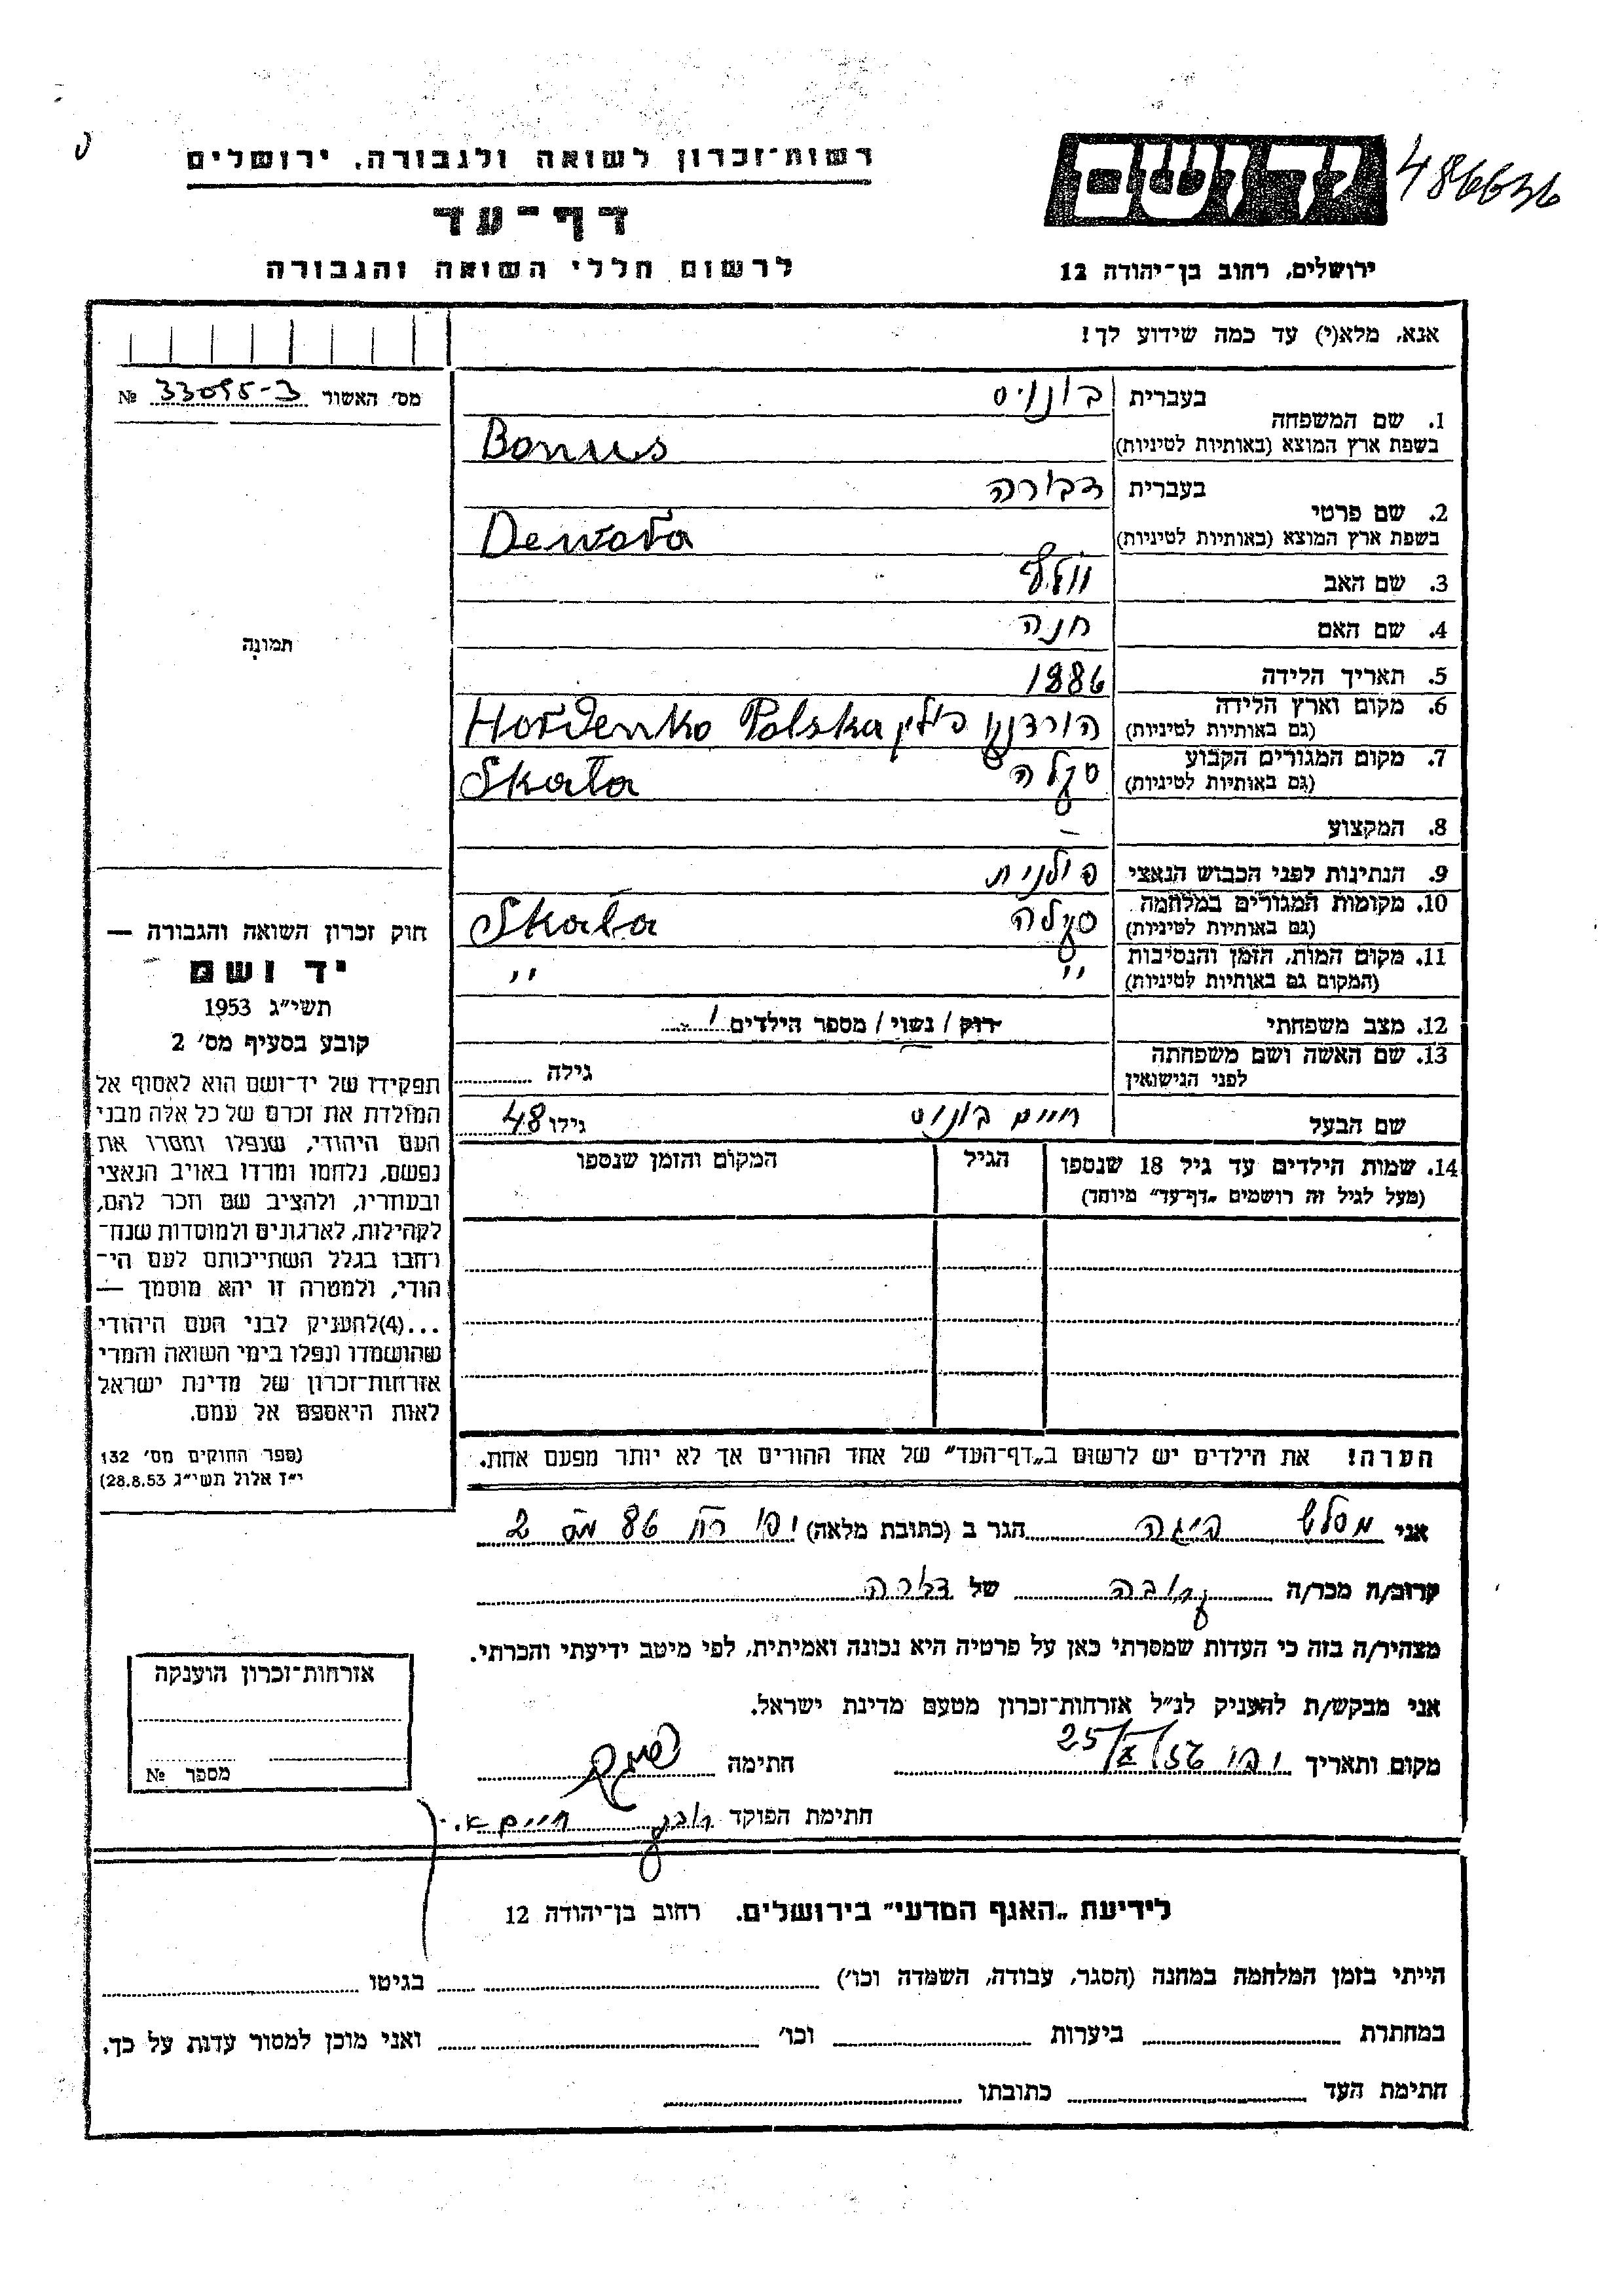 רשות־זכרון לשואה ולגבורה, ירושלים
דף־עד
לרשום חללי השואה והגבורה
יד ושם
486636
ירושלים, רחוב בן־יהודה 12
אנא, מלא(י) עד כמה שידוע לך!
מס׳ האשור 33095-3 №
1. שם המשפחה בעברית בונויס
בשפת ארץ המוצא (באותיות לטיניות) Bonus
2. שם פרטי בעברית דבורה
בשפת ארץ המוצא (באותיות לטיניות) Dewora
3. שם האב וולף
4. שם האם חנה
5. תאריך הלידה 1886
6. מקום וארץ הלידה (גם באותיות לטיניות) הורדנקו פולין Hordenko Polska
7. מקום המגורים הקבוע (גם באותיות לטיניות) סקלה Skała
8. המקצוע –
9. הנתינות לפני הכבוש הנאצי פולנית
10. מקומות המגורים במלחמה (גם באותיות לטיניות) סקלה Skała
11. מקום המות, הזמן והנסיבות (המקום גם באותיות לטיניות) " "
12. מצב משפחתי רוק / נשוי / מספר הילדים 1
13. שם האשה ושם משפחתה לפני הנישואין גילה
שם הבעל חיים בונוס גילו 48
14. שמות הילדים עד גיל 18 שנספו
(מעל לגיל זה רושמים „דף־עד” מיוחד)
הגיל
המקום והזמן שנספו
הערה! את הילדים יש לרשום ב„דף־העד” של אחד ההורים אך לא יותר מפעם אחת.
תמונה
חוק זכרון השואה והגבורה —
יד ושם
תשי״ג 1953
קובע בסעיף מס׳ 2
תפקידו של יד־ושם הוא לאסוף אל
המולדת את זכרם של כל אלה מבני
העם היהודי, שנפלו ומסרו את
נפשם, נלחמו ומרדו באויב הנאצי
ובעוזריו, ולהציב שם וזכר להם,
לקהילות, לארגונים ולמוסדות שנח־
רבו בגלל השתייכותם לעם הי־
הודי, ולמטרה זו יהא מוסמך —
...(4)להעניק לבני העם היהודי
שהושמדו ונפלו בימי השואה והמרי
אזרחות־זכרון של מדינת ישראל
לאות היאספם אל עמם.
(ספר החוקים מס׳ 132
י״ז אלול תשי״ג 28.8.53)
אני הגר ב (כתובת מלאה) יפו 86 2
קרוב/ה מכר/ה קרובה של דבורה
מצהיר/ה בזה כי העדות שמסרתי כאן על פרטיה היא נכונה ואמיתית, לפי מיטב ידיעתי והכרתי.
אני מבקש/ת להעניק לנ״ל אזרחות־זכרון מטעם מדינת ישראל.
מקום ותאריך יפו 25/X/56 חתימה
חתימת הפוקד חיים א.
אזרחות־זכרון הוענקה
מספר №
לידיעת „האגף המדעי” בירושלים. רחוב בן־יהודה 12
הייתי בזמן המלחמה במחנה (הסגר, עבודה, השמדה וכו׳) בגיטו
במחתרת ביערות וכו׳ ואני מוכן למסור עדות על כך.
חתימת העד כתובתו